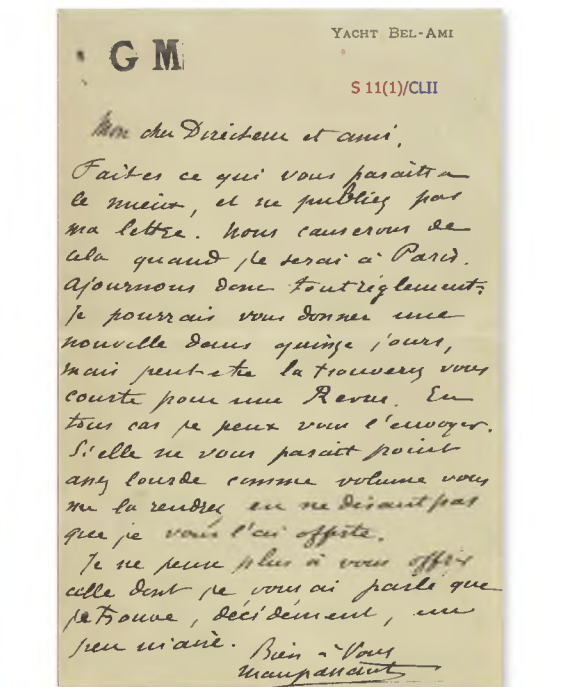 YACHT BEL-AMI
G M
S 11(1)/CLII
Mon cher Directeur et ami,
Faites ce qui vous paraîtra
le mieux, et ne publiez pas
ma lettre. Nous causerons de
cela quand je serai à Paris.
Ajournons donc tout règlement.
Je pourrais vous donner une
nouvelle dans quinze jours,
mais peut-etre la trouverez vous
courte pour une Revue. En
tous cas je peux vous l'envoyer.
Si elle ne vous parait point
assez lourde comme volume vous
me la rendrez en ne disant pas
que je vous l'ai offerte.
Je ne pense plus à vous offrir
celle dont je vous ai parlé que
je trouve, décidément, un
peu niaise.
Bien à Vous
Maupassant